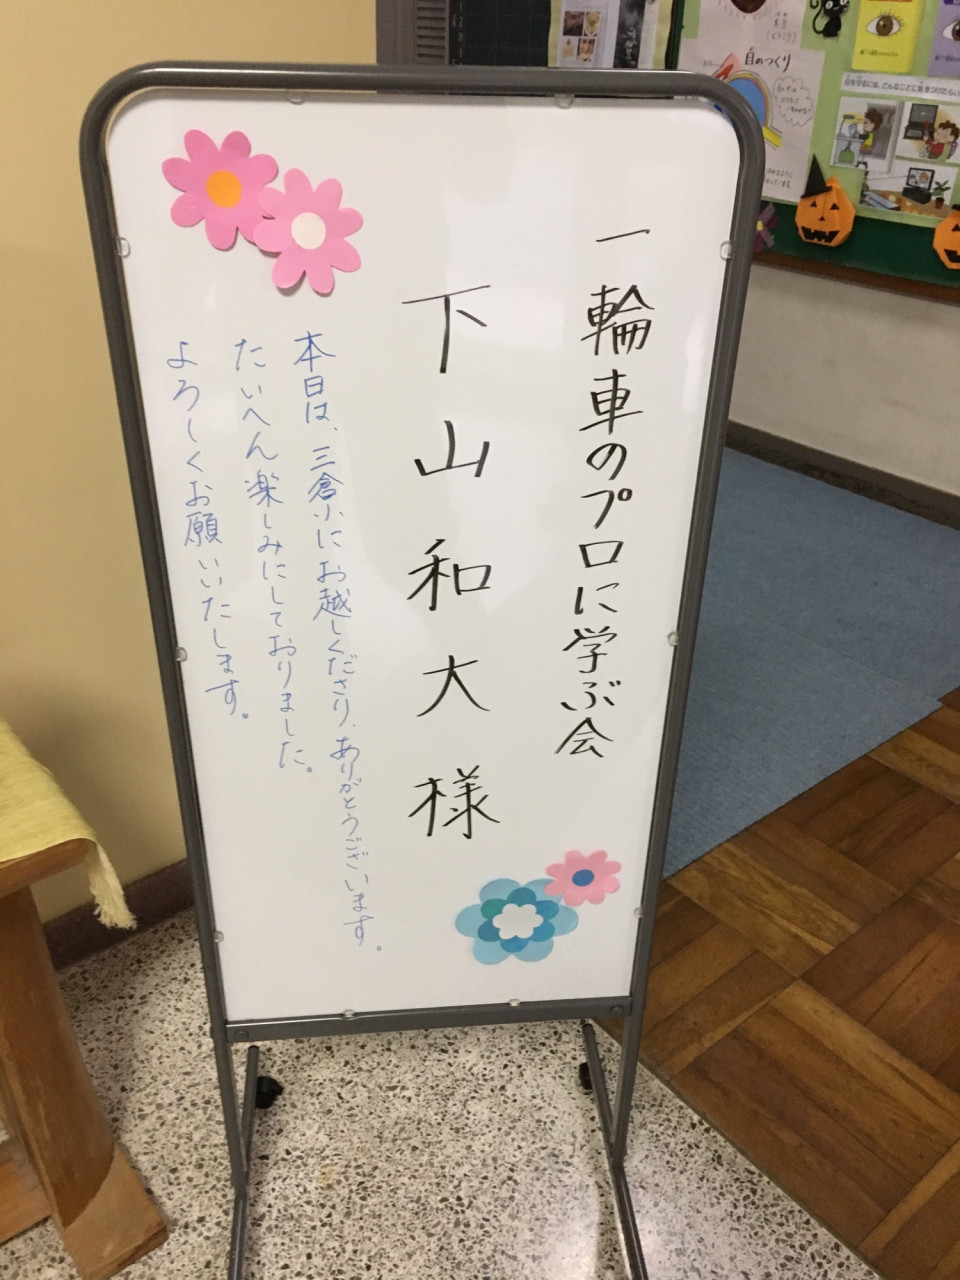 一輪車のプロに学ぶ会
下山和大様
本日は、三倉小にお越しくださり、ありがとうございます。
たいへん楽しみにしておりました。
よろしくお願いいたします。
目のつくり